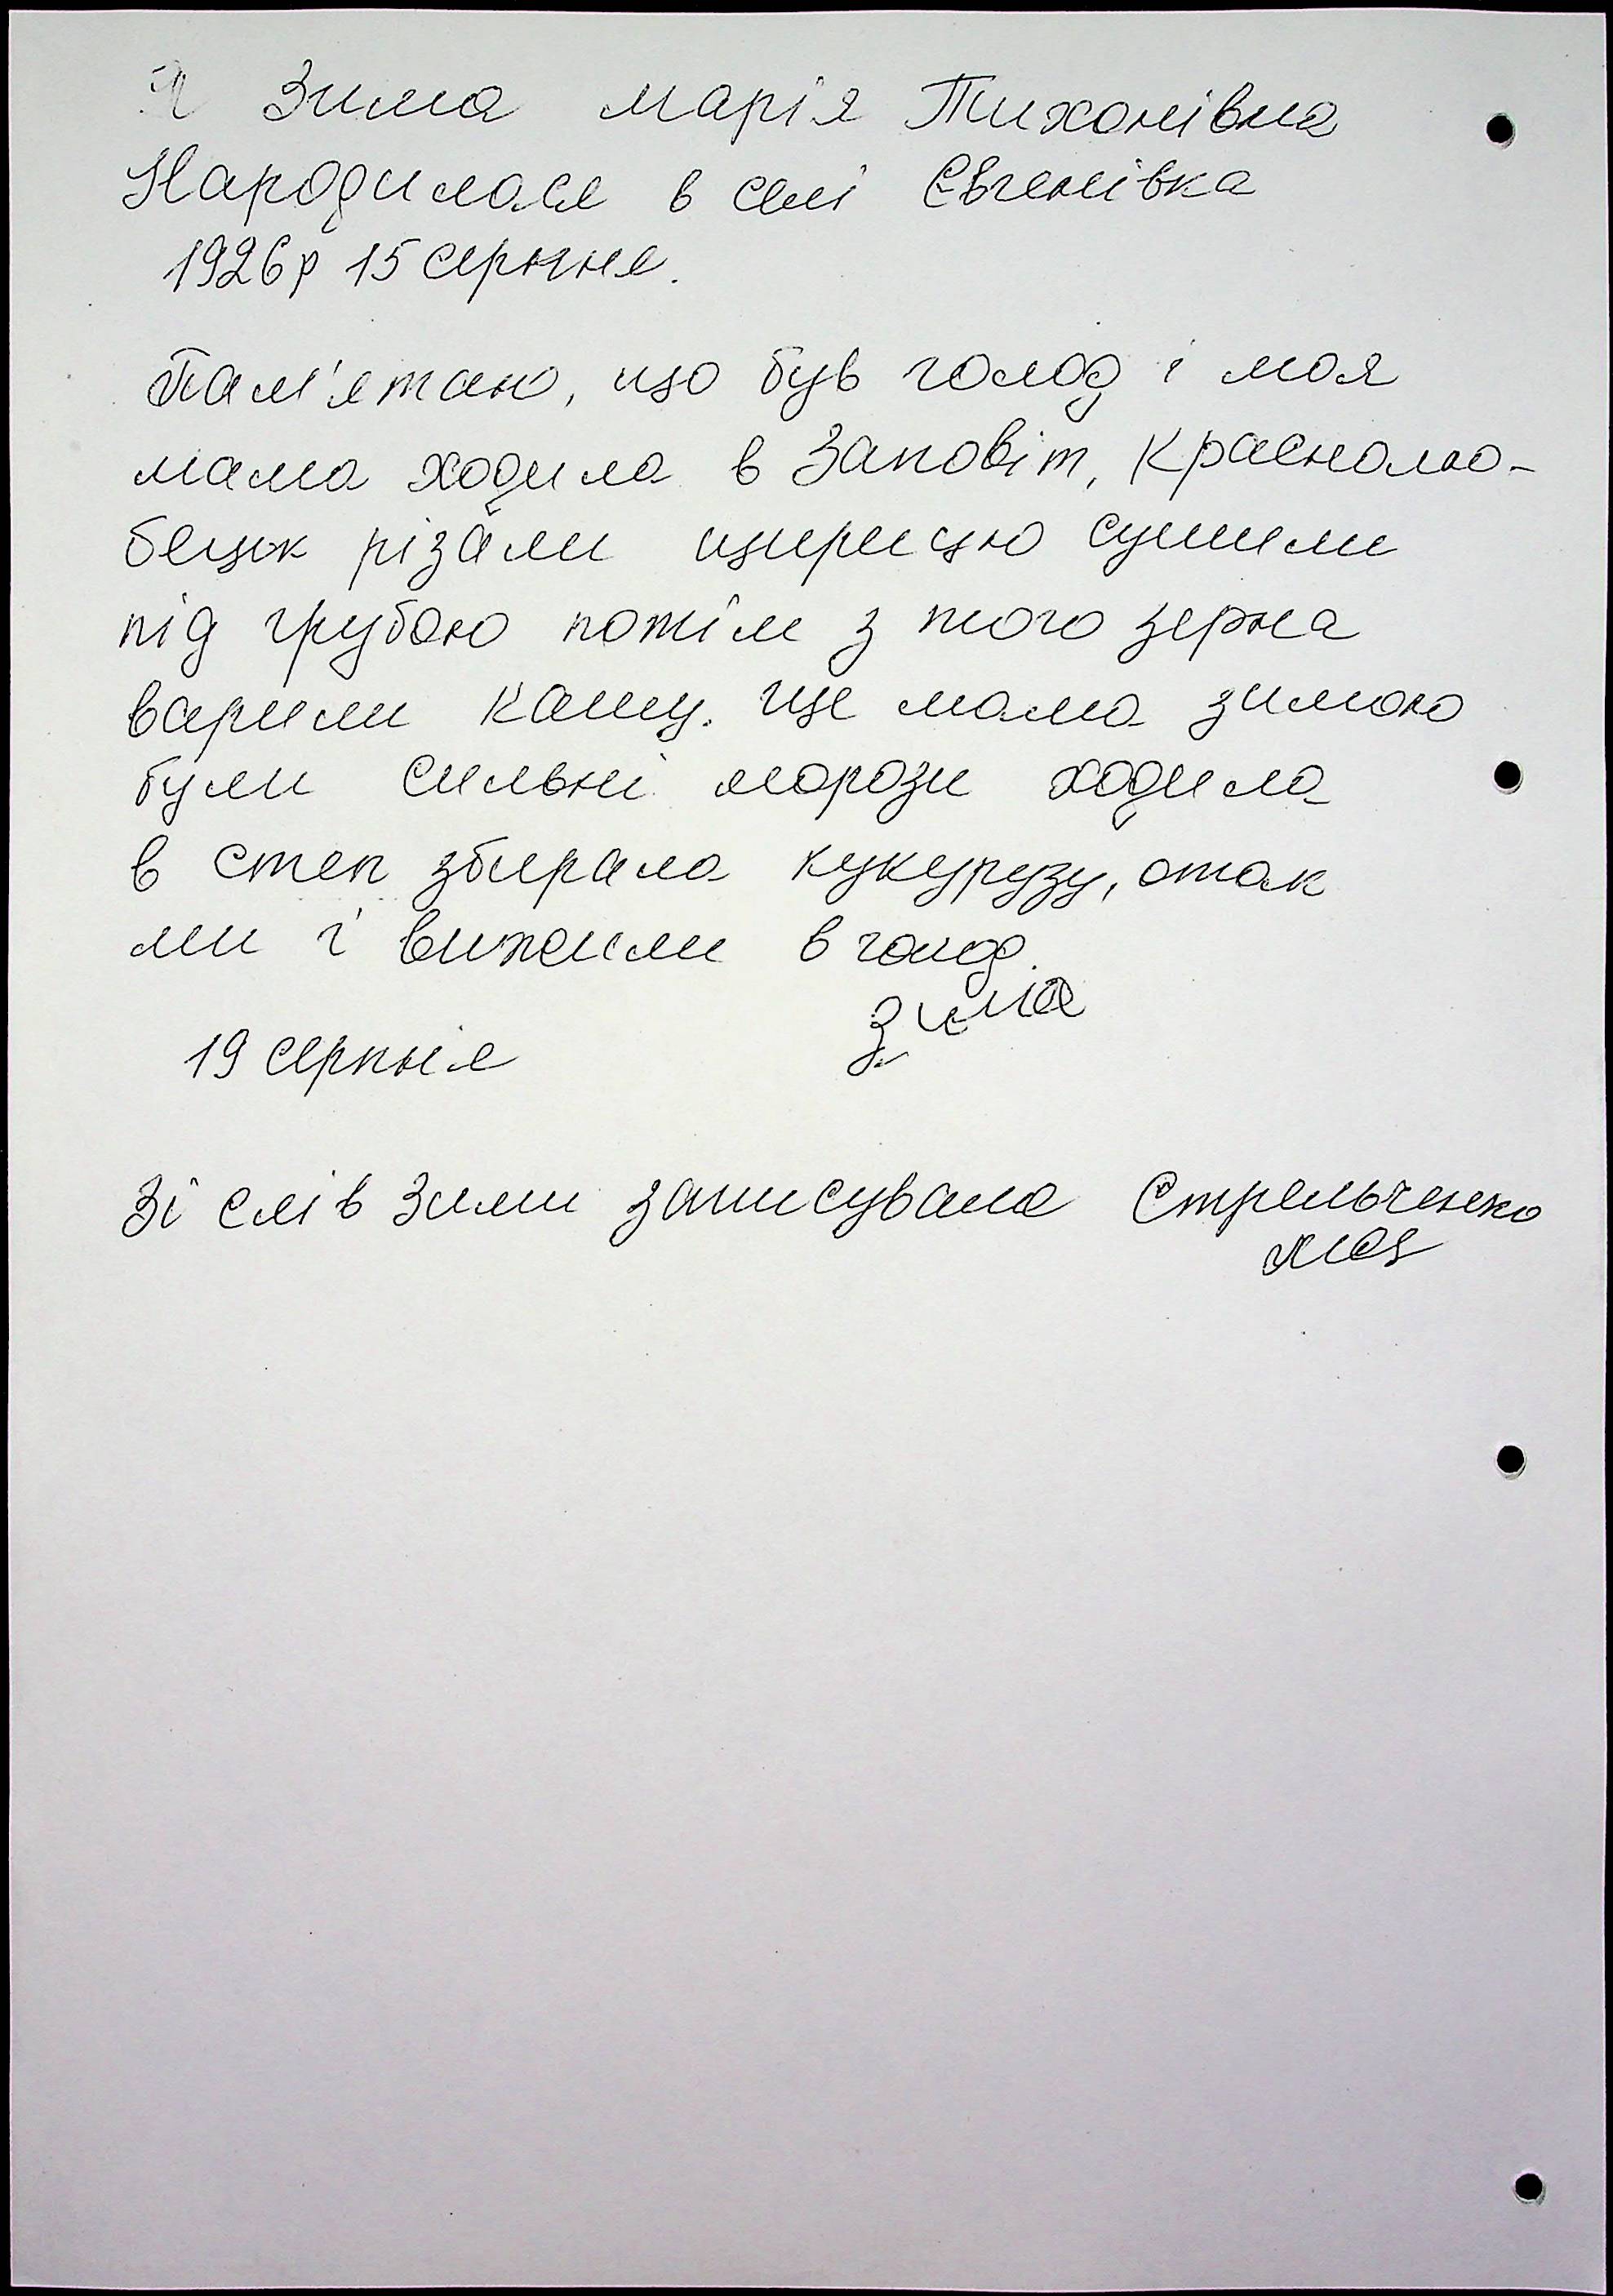 Я Зима марія Тихонівна
Народилася в селі Євгенівка
1926р 15 серпня.
Пам'ятаю, що був голод і моя
мама ходила в Заповіт, Краснолю-
бецьк різали щирицю сушили
під грубою потім з того зерна
варили кашу. Ще мама зимою
були сильні морози ходила
в степ збирала кукурузу, отак
ми і вижили в голод.
Зима
19 серпня
Зі слів Зими записувала Стрельченко